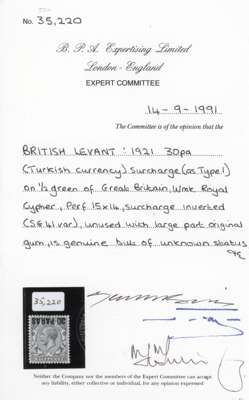 No. 35,220
B. P. A. Expertising Limited
London - England
EXPERT COMMITTEE
14-9-1991
The Committee is of the opinion that the
BRITISH LEVANT : 1921 30pa
(Turkish currency) Surcharge (as Type 1)
on ½ green of Great Britain, Wmk Royal
Cypher, Perf. 15x14, surcharge inverted
(SG 41 var), unused with large part original
gum, is genuine but of unknown status
35,220
Neither the Company nor the members of the Expert Committee can accept
any liability, either collective or individual, for any opinion expressed